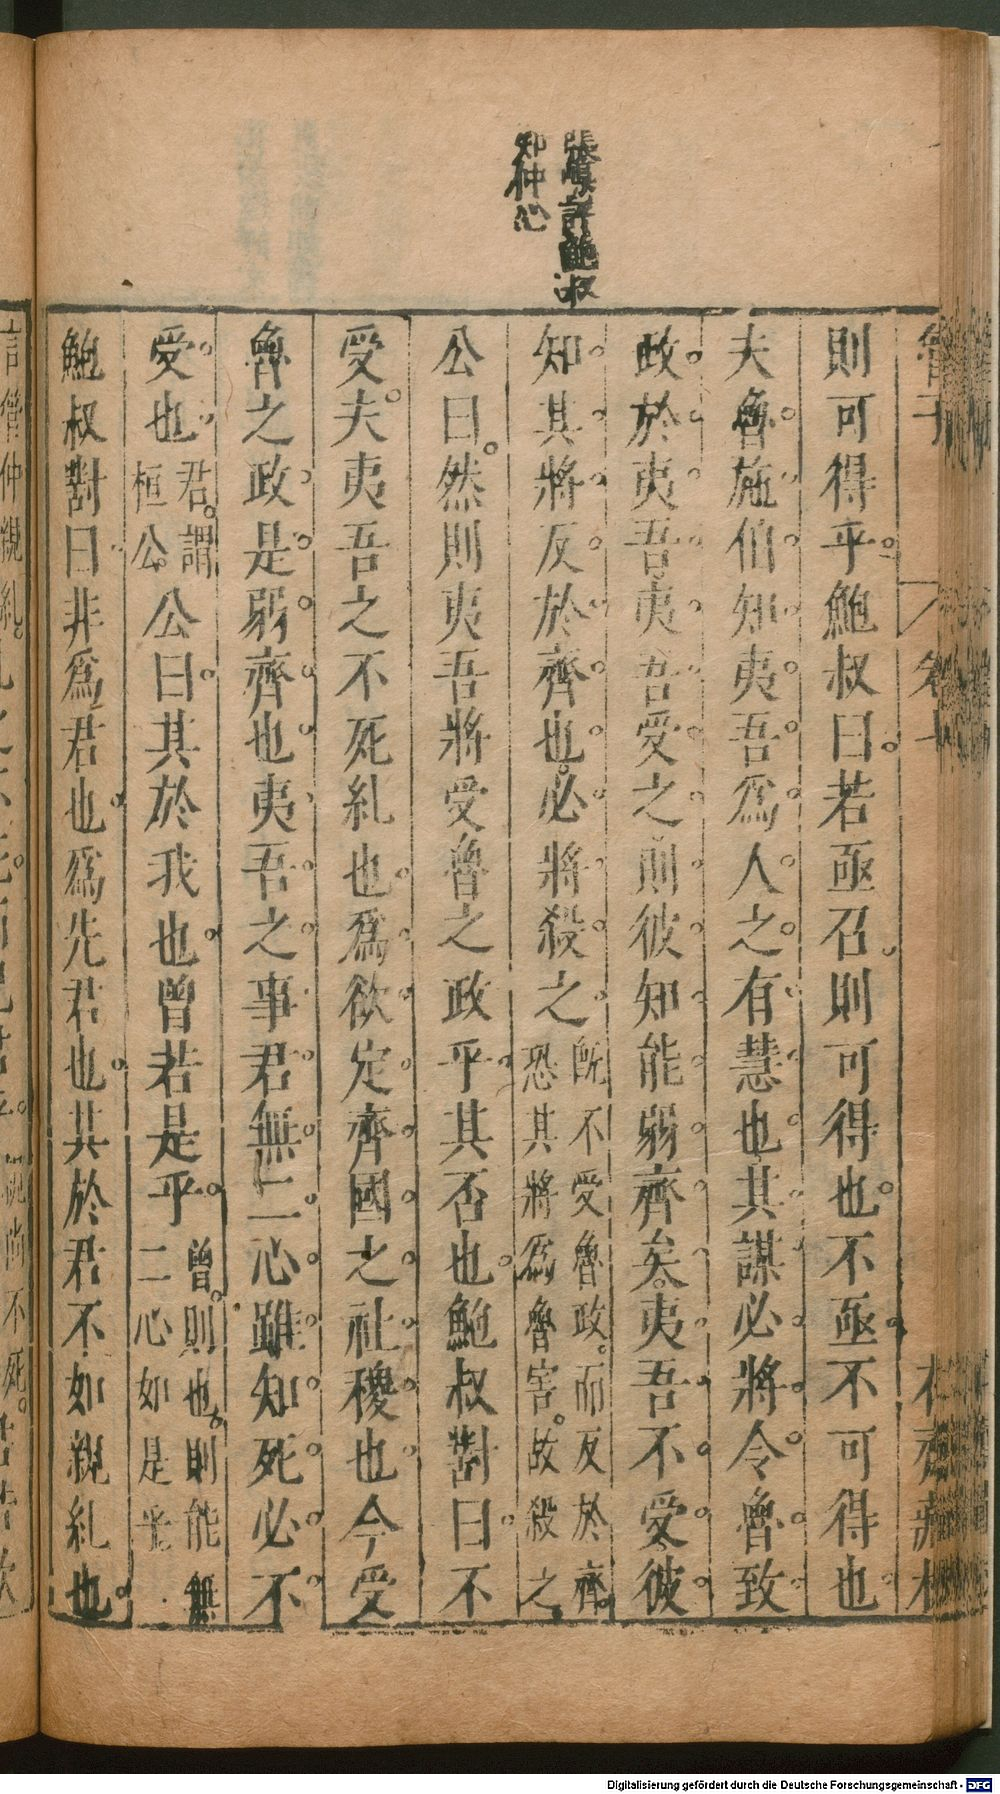 張賓評鮑叔
知仲心
管子
卷七
則可得乎鮑叔曰若亟召則可得也不亟不可得也
夫魯施伯知夷吾爲人之有慧也其謀必將令魯致
政於夷吾夷吾受之則彼知能弱齊矣夷吾不受彼
知其將反於齊也必將殺之旣不受魯政而反於齊恐其將爲魯害故殺之
公曰然則夷吾將受魯之政乎其否也鮑叔對曰不
受夫夷吾之不死糺也爲欲定齊國之社稷也今受
魯之政是弱齊也夷吾之事君無二心雖知死必不
受也君謂桓公公曰其於我也曾若是乎曾則也則能無二心如是乎
鮑叔對曰非爲君也爲先君也其於君不如親糺也
Digitalisierung gefördert durch die Deutsche Forschungsgemeinschaft - DFG